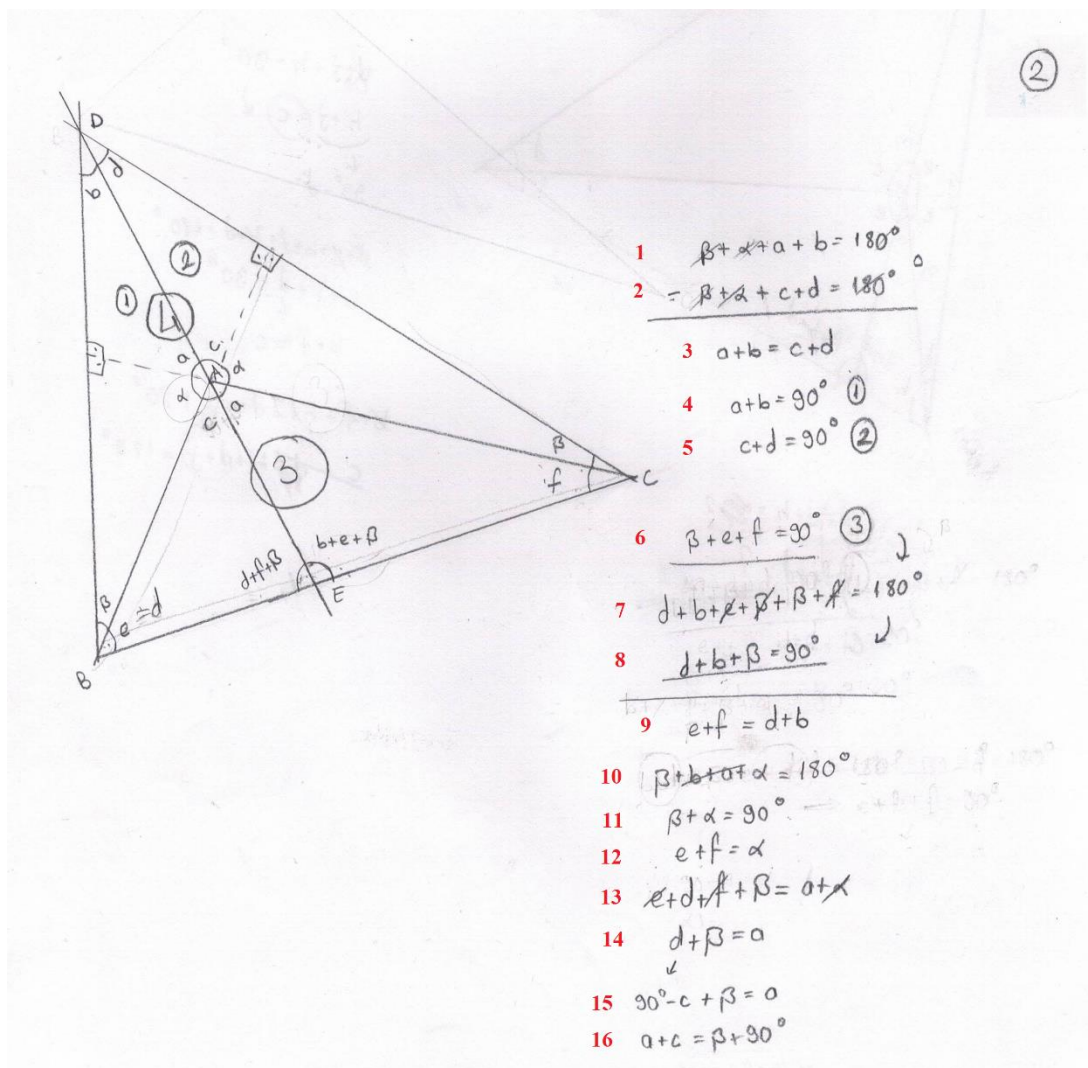 ②
D
b d
②
① 4
a c α
A
α c a
β
f C
3
b+e+β
d+f+β
E
β e =d
B
1 β+α+a+b=180°
2 = β+α+c+d=180°
3 a+b=c+d
4 a+b=90° ①
5 c+d=90° ②
6 β+e+f=90° ③
7 d+b+e+β+β+f=180°
8 d+b+β=90°
9 e+f=d+b
10 β+b+a+α=180°
11 β+α=90°
12 e+f=α
13 e+d+f+β=a+α
14 d+β=a
15 90°-c+β=a
16 a+c=β+90°